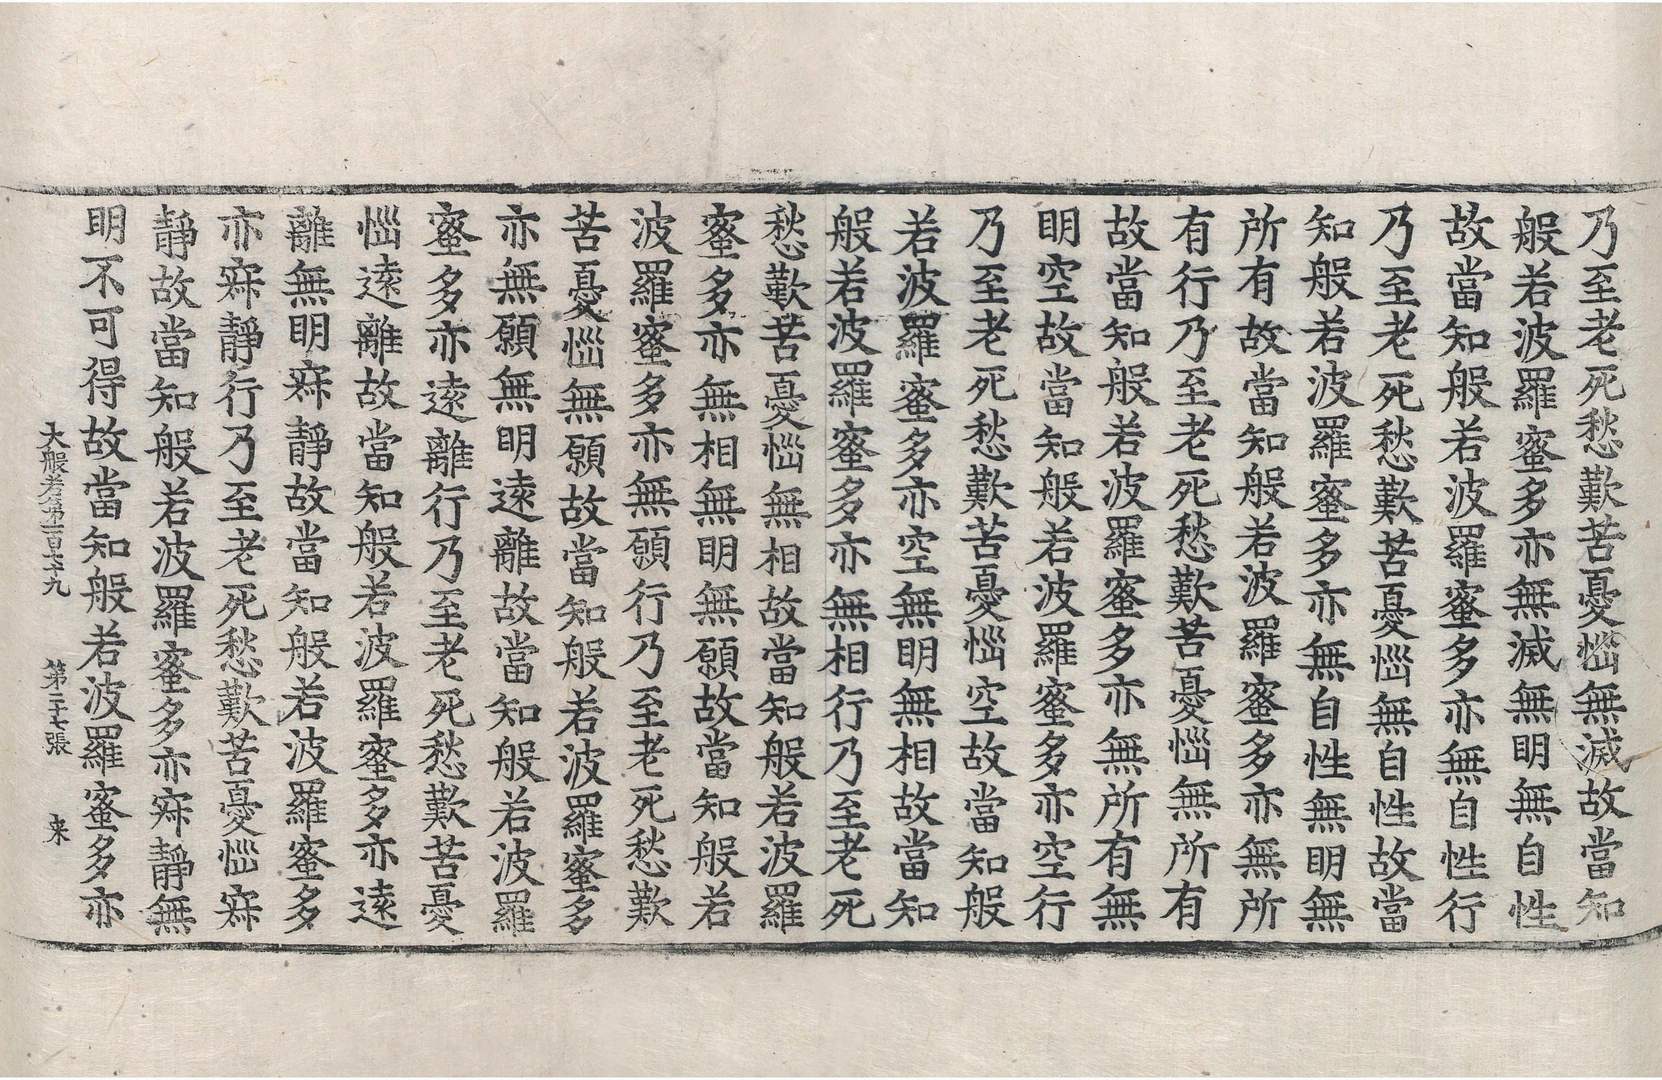 乃至老死愁歎苦憂惱無滅故當知
般若波羅蜜多亦無滅無明無自性
故當知般若波羅蜜多亦無自性行
乃至老死愁歎苦憂惱無自性故當
知般若波羅蜜多亦無自性無明無
所有故當知般若波羅蜜多亦無所
有行乃至老死愁歎苦憂惱無所有
故當知般若波羅蜜多亦無所有無
明空故當知般若波羅蜜多亦空行
乃至老死愁歎苦憂惱空故當知般
若波羅蜜多亦空無明無相故當知
般若波羅蜜多亦無相行乃至老死
愁歎苦憂惱無相故當知般若波羅
蜜多亦無相無明無願故當知般若
波羅蜜多亦無願行乃至老死愁歎
苦憂惱無願故當知般若波羅蜜多
亦無願無明遠離故當知般若波羅
蜜多亦遠離行乃至老死愁歎苦憂
惱遠離故當知般若波羅蜜多亦遠
離無明寂靜故當知般若波羅蜜多
亦寂靜行乃至老死愁歎苦憂惱寂
靜故當知般若波羅蜜多亦寂靜無
明不可得故當知般若波羅蜜多亦
大般若第一百七十九 第二十七張 来